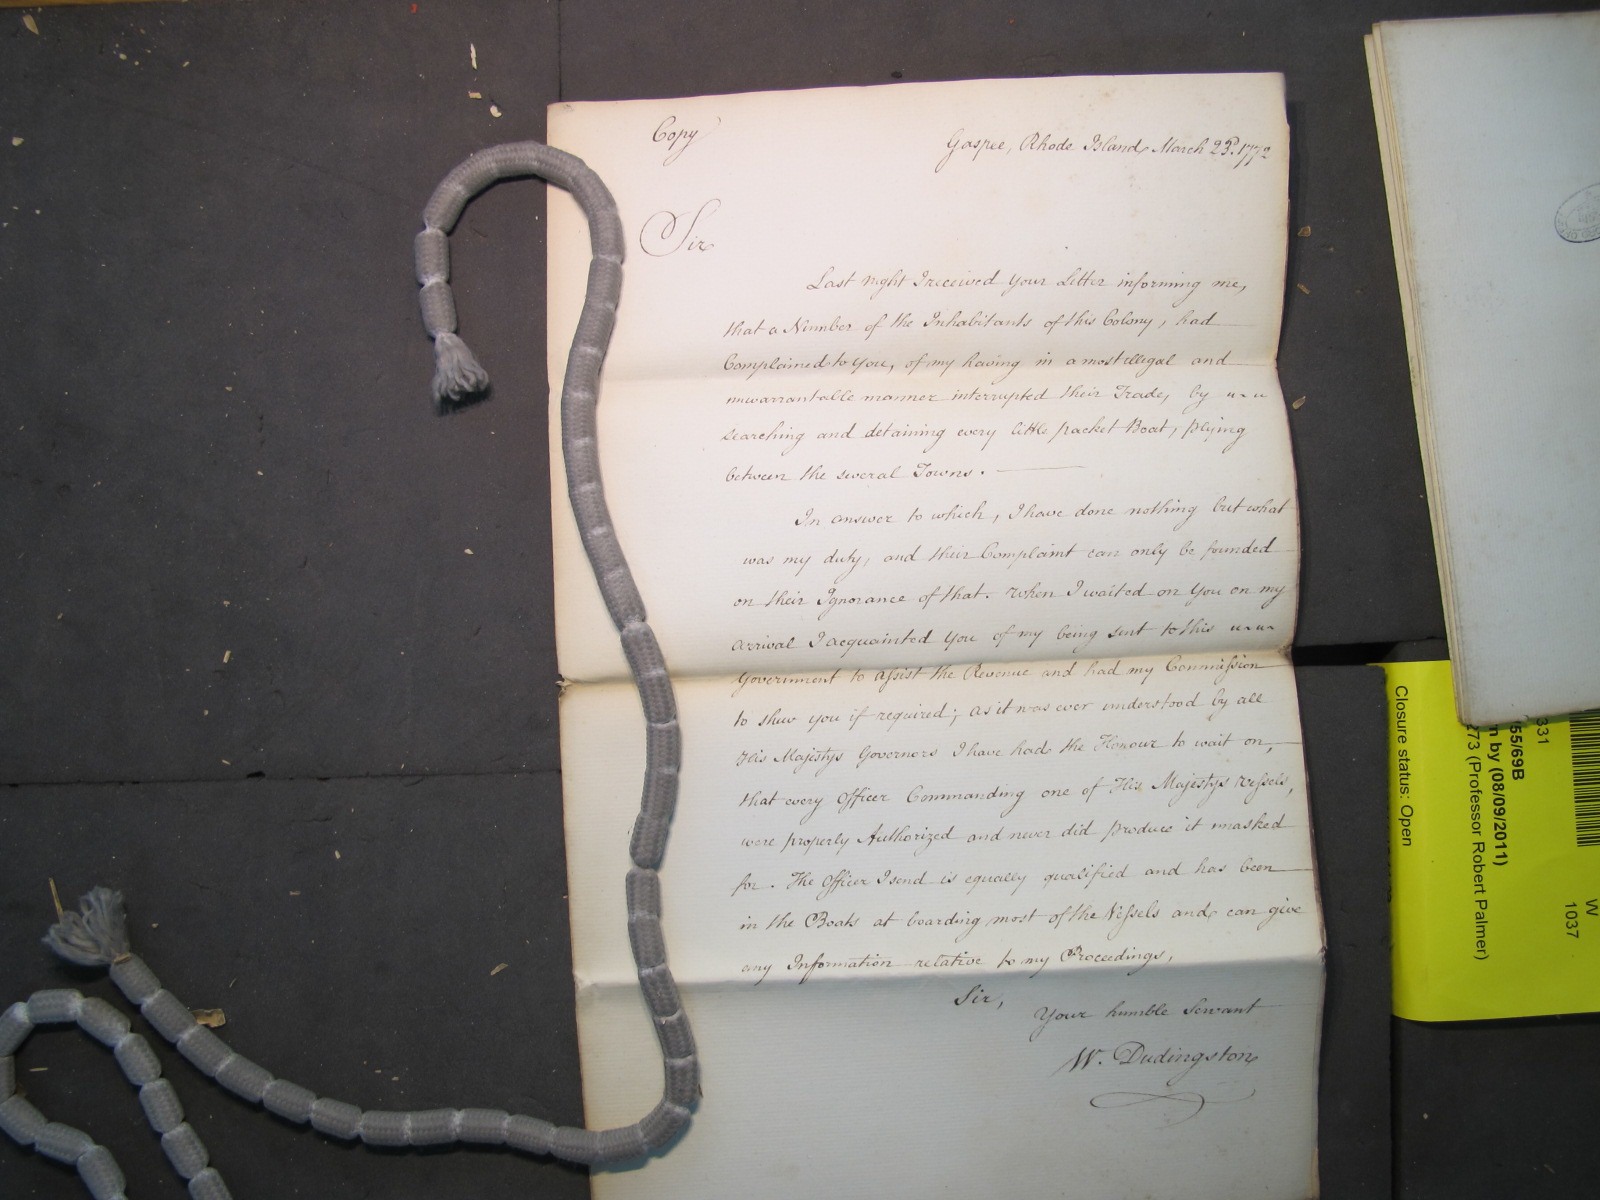 Copy
Gaspee, Rhode Island, March 23d. 1772
Sir
Last night I received Your Letter informing me,
that a Number of the Inhabitants of this Colony, had
Complained to You, of my having in a most illegal and
unwarrantable manner interrupted their Trade, by
searching and detaining every little packet Boat, plying
between the several Towns.
In answer to which, I have done nothing but what
was my duty, and their Complaint can only be founded
on their Ignorance of that. When I waited on You on my
arrival I acquainted You of my being sent to this
Government to assist the Revenue and had my Commission
to shew you if required; as it was ever understood by all
His Majestys Governors I have had the Honour to wait on,
that every Officer Commanding one of His Majestys Vessels,
were properly Authorized and never did produce it unasked
for. The Officer I send is equally qualified and has been
in the Boats at boarding most of the Vessels and can give
any Information relative to my Proceedings,
Sir,
Your humble Servant
W. Dudingston
Closure status: Open
273 (Professor Robert Palmer)
by (08/09/2011)
55/69B
331
W
1037